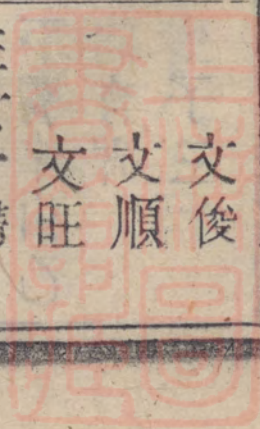 文俊
文順
文旺